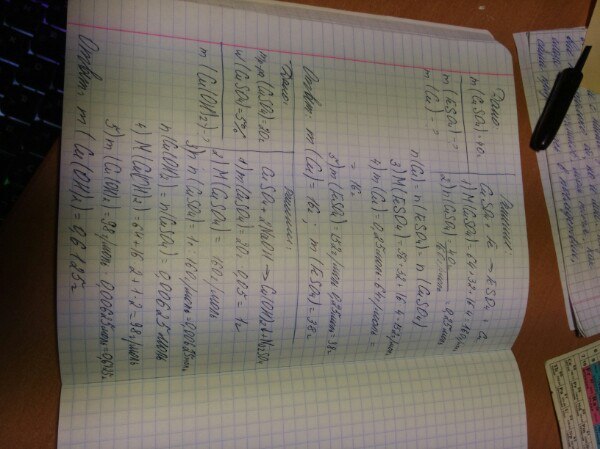 Дано:
m(CuSO4)=40г
m(FeSO4)-?
m(Cu)=?
Решение
CuSO4+Fe→FeSO4+Cu
1) M(CuSO4)=64+32+16·4=160г/моль
2) n(CuSO4)=40г/160г/моль=0,25моль
n(Cu)=n(FeSO4)=n(CuSO4)
3) M(FeSO4)=56+32+16·4=152г/моль
4) m(Cu)=0,25моль·64г/моль=
=16г
5) m(FeSO4)=152г/моль·0,25моль=38г
Ответ: m(Cu)=16г; m(FeSO4)=38г
Дано:
m(CuSO4)=20г
w(CuSO4)=5%
m(Cu(OH)2)-?
Решение:
CuSO4+2NaOH→Cu(OH)2↓+Na2SO4
1) m(CuSO4)=20г·0,05=1г
2) M(CuSO4)=160г/моль
3) n(CuSO4)=1г:160г/моль=0,00625моль
n(Cu(OH)2)=n(CuSO4)=0,00625моль
4) M(Cu(OH)2)=64+16·2+1·2=98г/моль
5) m(Cu(OH)2)=98г/моль·0,00625моль=0,6125г
Ответ: m(Cu(OH)2)=0,6125г